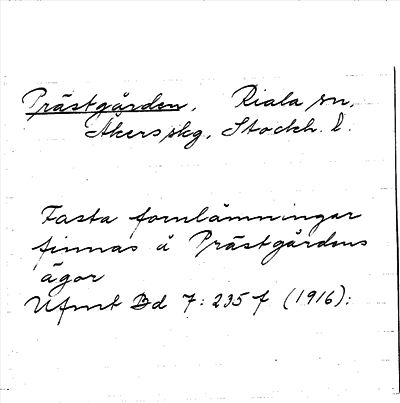 Prästgården. Riala sn,
Åkers skg, Stockh. l.
Fasta fornlämningar
finnas å Prästgårdens
ägor
Ufmt Bd 7: 235 f (1916):